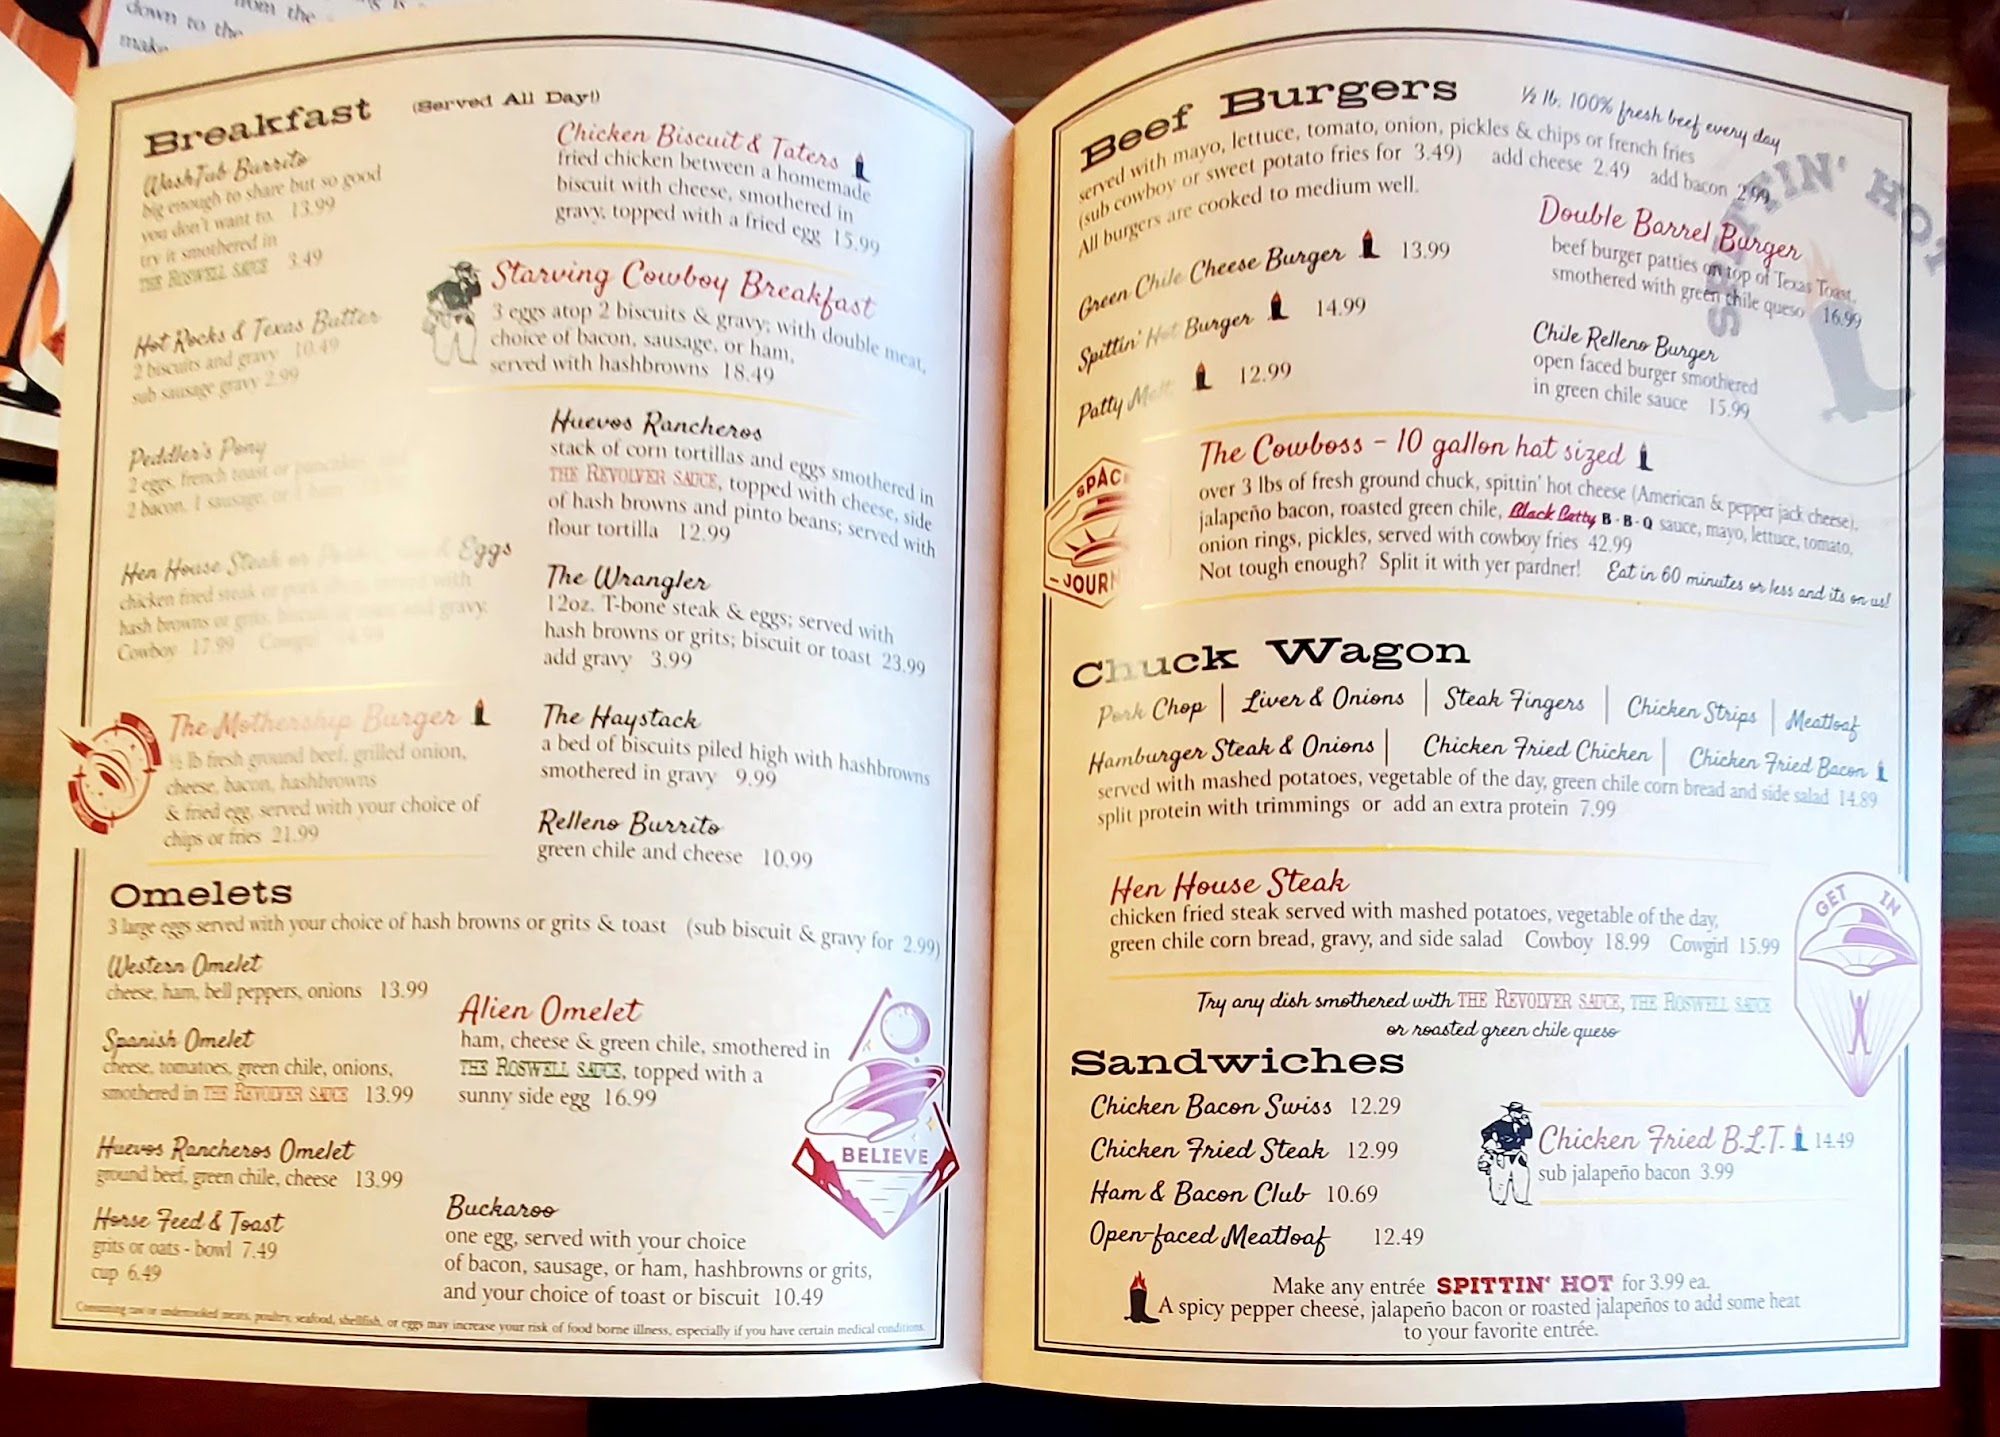 from the
down to the
make
Breakfast (Served All Day!)
WashTub Burrito
big enough to share but so good
you don't want to. 13.99
try it smothered in
THE ROSWELL SAUCE 3.49
Hot Rocks & Texas Butter
2 biscuits and gravy 10.49
sub sausage gravy 2.99
Peddler's Pony
2 eggs, french toast or pancakes
2 bacon, 1 sausage, or 1 ham
Hen House Steak or & Eggs
chicken fried steak or pork served with
hash browns or grits, gravy.
Cowboy 17.99 Cowgirl
The Mothership Burger
½ lb fresh ground beef, grilled onion,
cheese, bacon, hashbrowns
& fried egg, served with your choice of
chips or fries 21.99
Chicken Biscuit & Taters
fried chicken between a homemade
biscuit with cheese, smothered in
gravy, topped with a fried egg 15.99
Starving Cowboy Breakfast
3 eggs atop 2 biscuits & gravy; with double meat,
choice of bacon, sausage, or ham,
served with hashbrowns 18.49
Huevos Rancheros
stack of corn tortillas and eggs smothered in
THE REVOLVER SAUCE, topped with cheese, side
of hash browns and pinto beans; served with
flour tortilla 12.99
The Wrangler
12oz. T-bone steak & eggs; served with
hash browns or grits; biscuit or toast 23.99
add gravy 3.99
The Haystack
a bed of biscuits piled high with hashbrowns
smothered in gravy 9.99
Relleno Burrito
green chile and cheese 10.99
Omelets
3 large eggs served with your choice of hash browns or grits & toast (sub biscuit & gravy for 2.99)
Western Omelet
cheese, ham, bell peppers, onions 13.99
Spanish Omelet
cheese, tomatoes, green chile, onions,
smothered in THE REVOLVER SAUCE 13.99
Huevos Rancheros Omelet
ground beef, green chile, cheese 13.99
Horse Feed & Toast
grits or oats - bowl 7.49
cup 6.49
Alien Omelet
ham, cheese & green chile, smothered in
THE ROSWELL SAUCE, topped with a
sunny side egg 16.99
BELIEVE
Buckaroo
one egg, served with your choice
of bacon, sausage, or ham, hashbrowns or grits,
and your choice of toast or biscuit 10.49
Consuming raw or undercooked meats, poultry, seafood, shellfish, or eggs may increase your risk of food borne illness, especially if you have certain medical conditions.
Beef Burgers ½ lb. 100% fresh beef every day
served with mayo, lettuce, tomato, onion, pickles & chips or french fries
(sub cowboy or sweet potato fries for 3.49) add cheese 2.49 add bacon 2.99
All burgers are cooked to medium well.
SPITTIN' HOT
Green Chile Cheese Burger 13.99
Spittin' Hot Burger 14.99
Patty Melt 12.99
Double Barrel Burger
beef burger patties on top of Texas Toast,
smothered with green chile queso 16.99
Chile Relleno Burger
open faced burger smothered
in green chile sauce 15.99
SPACE
- JOURN
The Cowboss - 10 gallon hat sized
over 3 lbs of fresh ground chuck, spittin' hot cheese (American & pepper jack cheese),
jalapeño bacon, roasted green chile, Black Betty B·B·Q sauce, mayo, lettuce, tomato,
onion rings, pickles, served with cowboy fries 42.99
Not tough enough? Split it with yer pardner! Eat in 60 minutes or less and its on us!
Chuck Wagon
Pork Chop | Liver & Onions | Steak Fingers | Chicken Strips | Meatloaf
Hamburger Steak & Onions | Chicken Fried Chicken | Chicken Fried Bacon
served with mashed potatoes, vegetable of the day, green chile corn bread and side salad 14.89
split protein with trimmings or add an extra protein 7.99
Hen House Steak
chicken fried steak served with mashed potatoes, vegetable of the day,
green chile corn bread, gravy, and side salad Cowboy 18.99 Cowgirl 15.99
GET IN
Try any dish smothered with THE REVOLVER SAUCE, THE ROSWELL SAUCE
or roasted green chile queso
Sandwiches
Chicken Bacon Swiss 12.29
Chicken Fried Steak 12.99
Ham & Bacon Club 10.69
Open-faced Meatloaf 12.49
Chicken Fried B.L.T. 14.49
sub jalapeño bacon 3.99
Make any entrée SPITTIN' HOT for 3.99 ea.
A spicy pepper cheese, jalapeño bacon or roasted jalapeños to add some heat
to your favorite entrée.